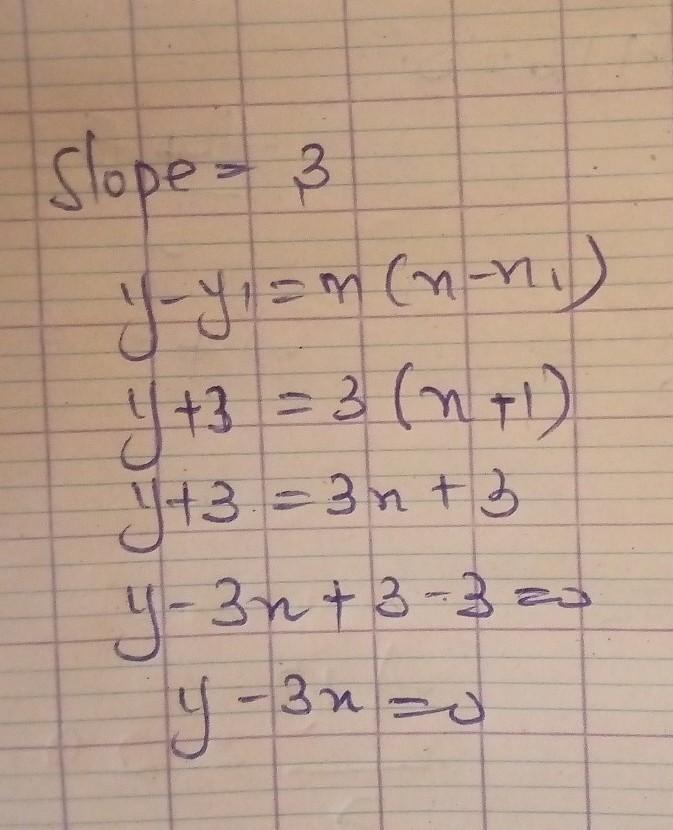 Slope = 3
y - y₁ = m (x - x₁)
y + 3 = 3 (x + 1)
y + 3 = 3x + 3
y - 3x + 3 - 3 = 0
y - 3x = 0